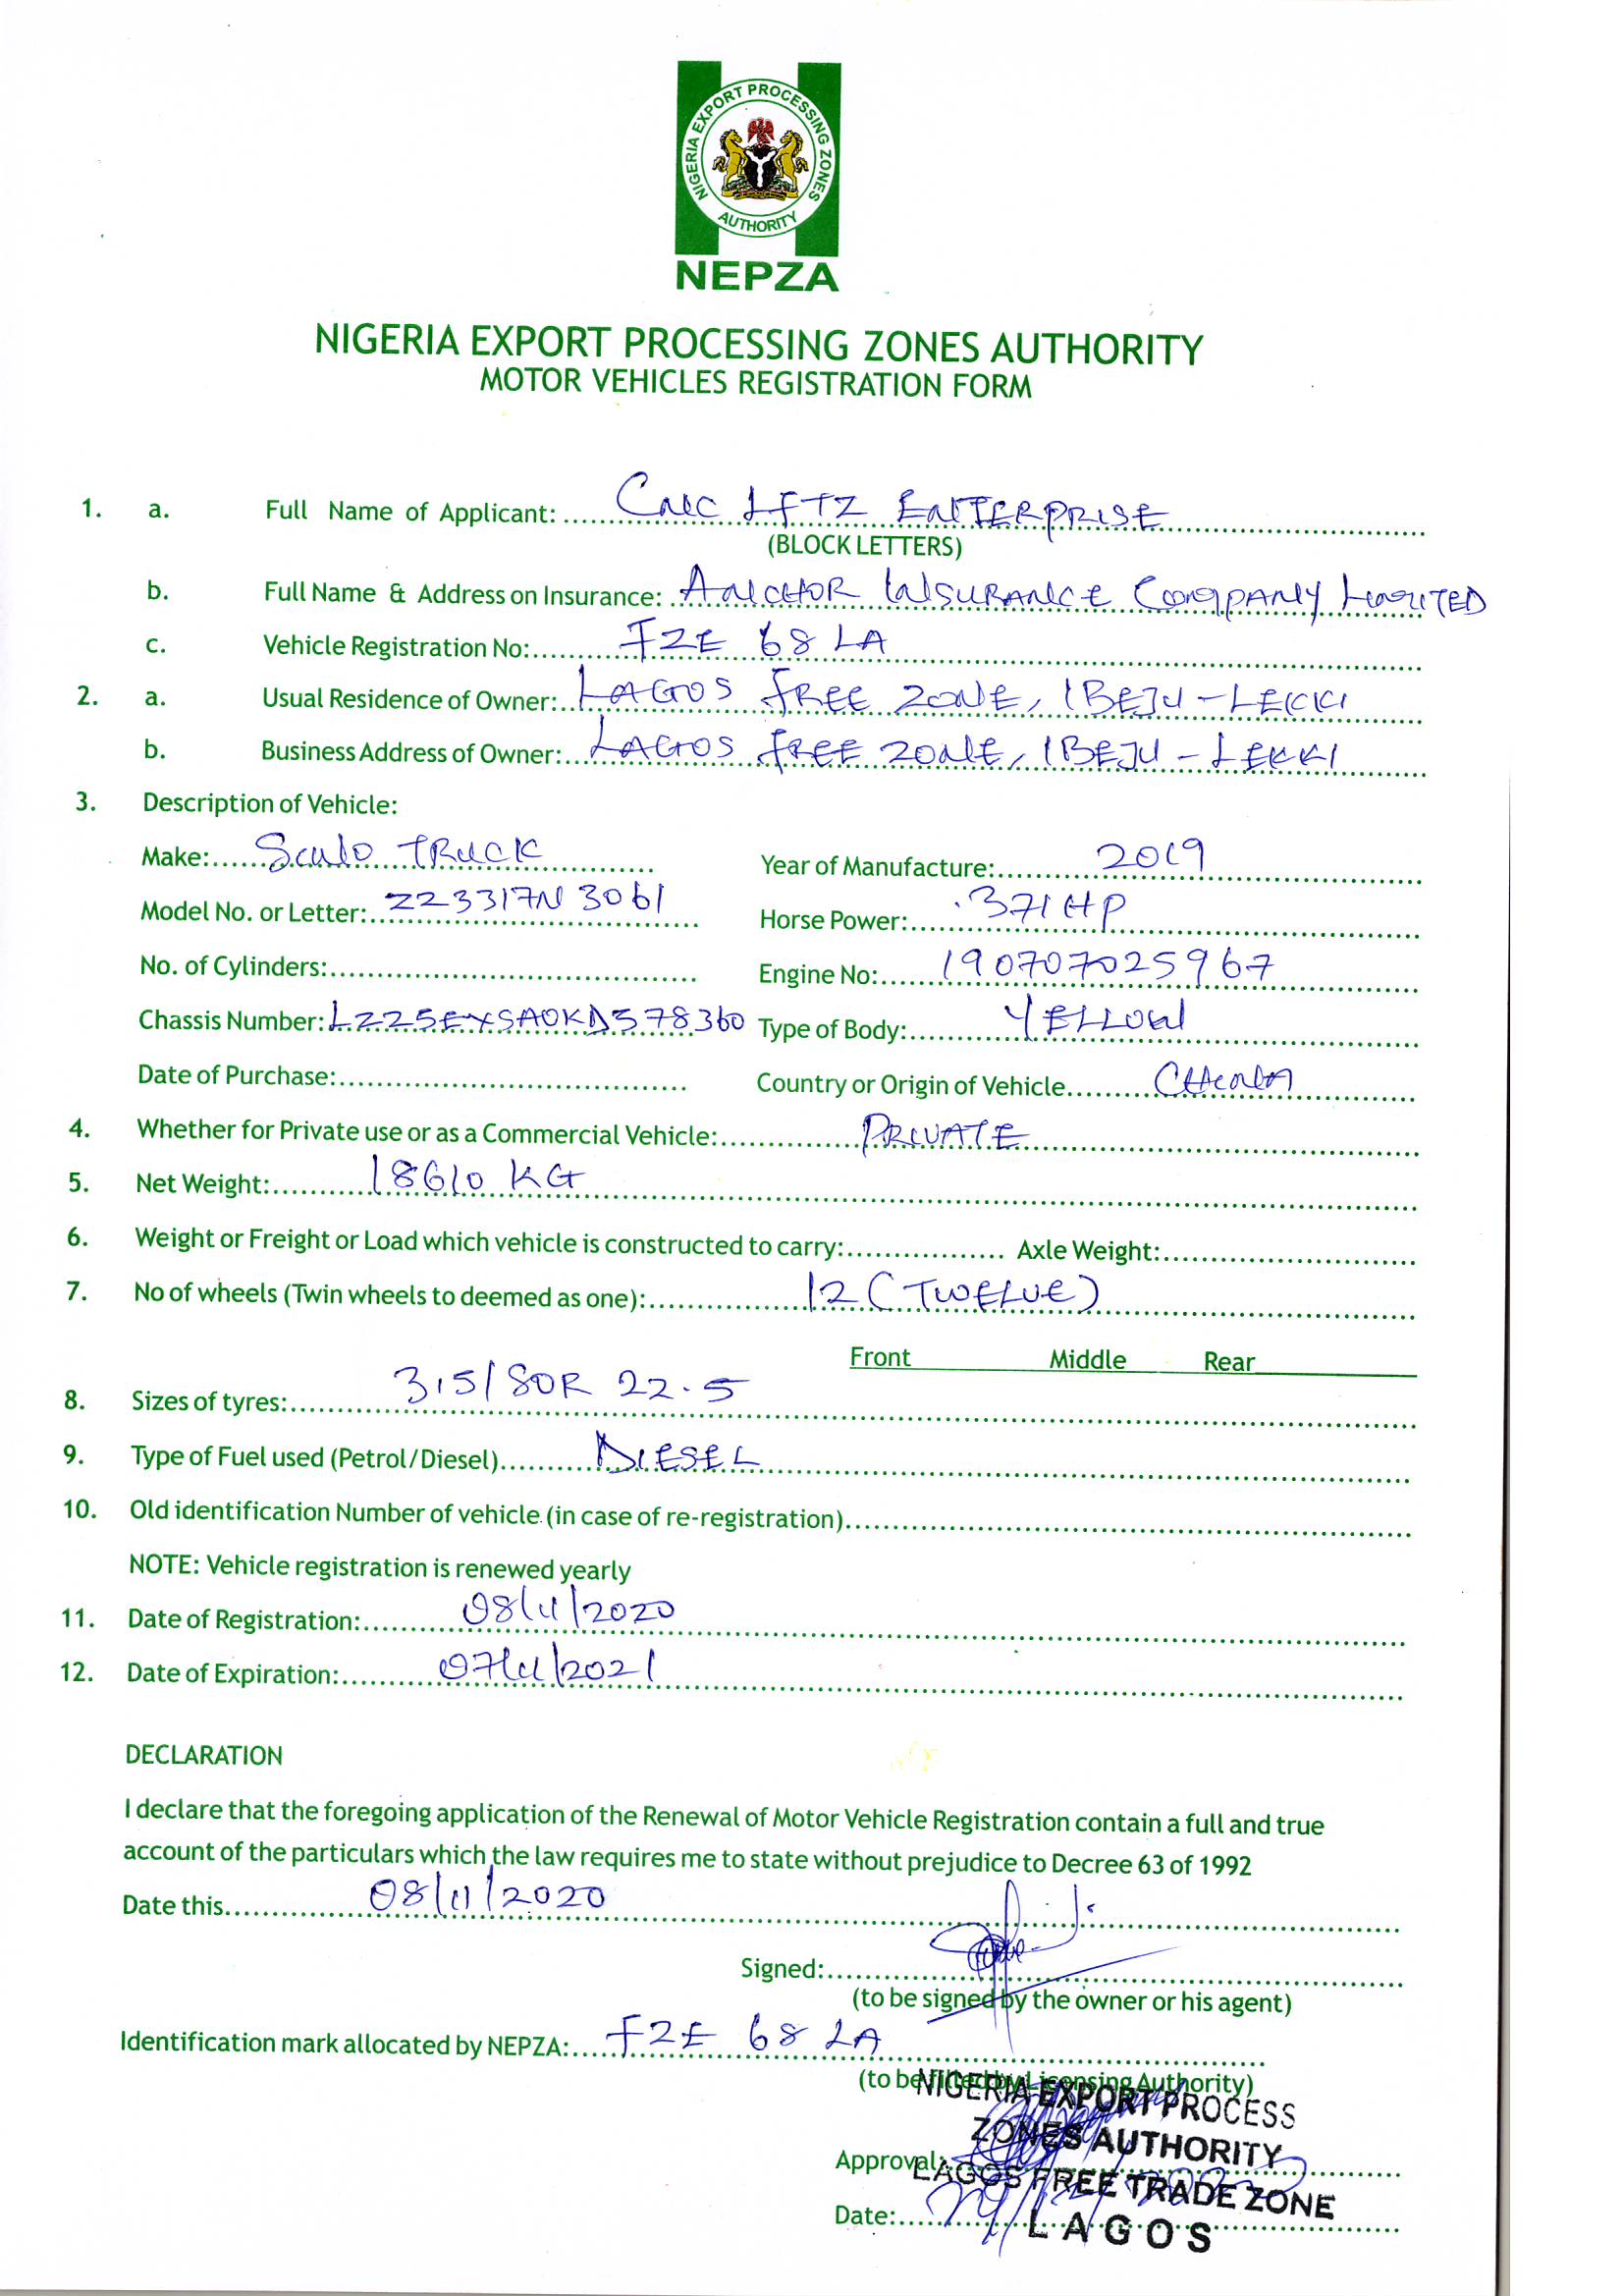 NIGERIA EXPORT PROCESSING ZONES
AUTHORITY
NEPZA
NIGERIA EXPORT PROCESSING ZONES AUTHORITY
MOTOR VEHICLES REGISTRATION FORM
1. a. Full Name of Applicant: LFTZ ENTERPRISE
(BLOCK LETTERS)
b. Full Name & Address on Insurance: ANCHOR INSURANCE COMPANY LIMITED
c. Vehicle Registration No: FZE 68 LA
2. a. Usual Residence of Owner: LAGOS FREE ZONE, IBEJU-LEKKI
b. Business Address of Owner: LAGOS FREE ZONE, IBEJU-LEKKI
3. Description of Vehicle:
Make: TRUCK Year of Manufacture: 2019
Model No. or Letter: ZZ3317N3061 Horse Power: 371HP
No. of Cylinders: Engine No: 190707025967
Chassis Number: LZZ5EXSA0KD578360 Type of Body: YELLOW
Date of Purchase: Country or Origin of Vehicle CHINA
4. Whether for Private use or as a Commercial Vehicle: PRIVATE
5. Net Weight: 18610 KG
6. Weight or Freight or Load which vehicle is constructed to carry: Axle Weight:
7. No of wheels (Twin wheels to deemed as one): 12 (TWELVE)
Front Middle Rear
8. Sizes of tyres: 315/80R 22.5
9. Type of Fuel used (Petrol/Diesel) DIESEL
10. Old identification Number of vehicle (in case of re-registration)
NOTE: Vehicle registration is renewed yearly
11. Date of Registration: 08/11/2020
12. Date of Expiration: 07/11/2021
DECLARATION
I declare that the foregoing application of the Renewal of Motor Vehicle Registration contain a full and true
account of the particulars which the law requires me to state without prejudice to Decree 63 of 1992
Date this 08/11/2020
Signed:
(to be signed by the owner or his agent)
Identification mark allocated by NEPZA: FZE 68 LA
(to be filled by Licensing Authority)
NIGERIA EXPORT PROCESS
ZONES AUTHORITY
Approval:
LAGOS FREE TRADE ZONE
Date:
LAGOS